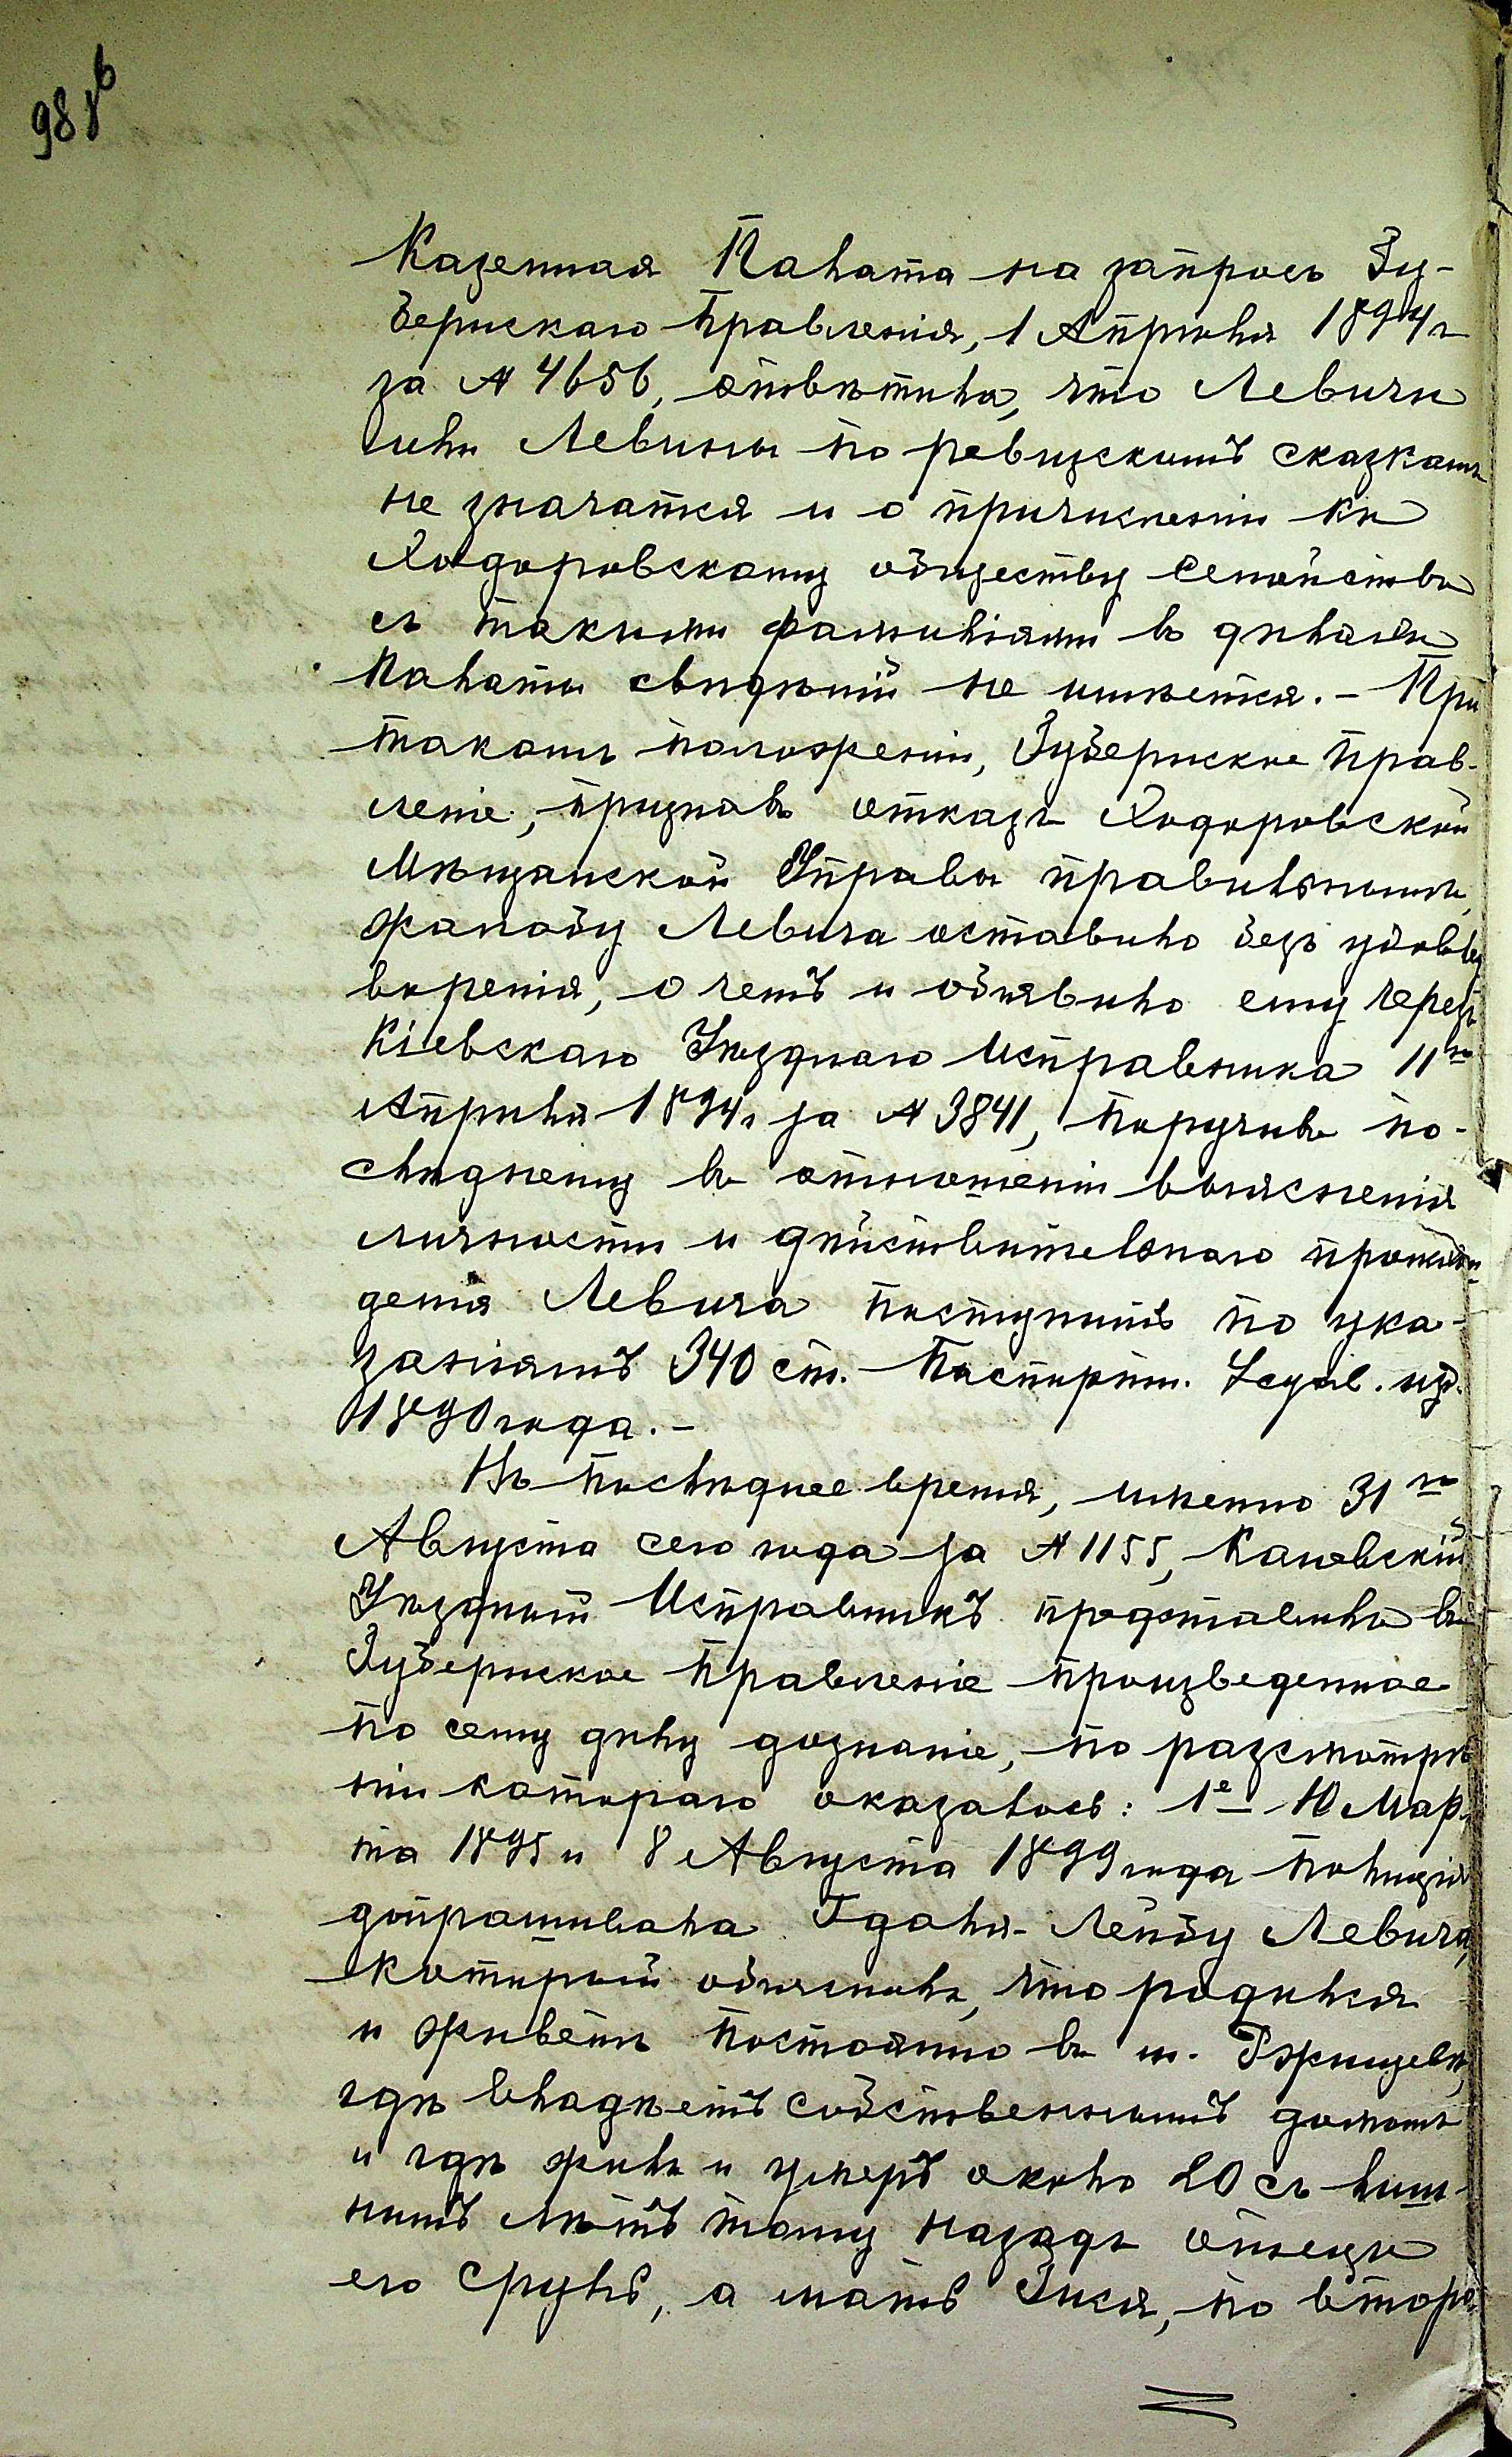 98 об
Казенная Палата на запросъ Гу-
бернскаго Правленія, 1 Апрѣля 1894 г
за № 4656, отвѣтила, что Левичи
или Левины по ревизскимъ сказкамъ
не значатся и о причисленіи къ
Ходоровскому обществу семейства
съ такими фамиліями въ дѣлахъ
Палаты свѣдѣній не имѣется. - При
такомъ положеніи, Губернское Прав-
леніе, признавъ отказъ Ходоровской
Мѣщанской Управы правильнымъ,
жалобу Левича оставило безъ удовлет
воренія, о чемъ и объявило ему черезъ
Кіевскаго Уѣзднаго Исправника 11го
Апрѣля 1894 г за № 3841, поручивъ по-
слѣднему въ отношеніи выясненія
личности и дѣйствительнаго происхож
денія Левича поступить по ука-
заніямъ 340 ст. Паспортн. Устав. изд.
1890 года. -
Въ послѣднее время, именно 31го
Августа сего года за № 1155, Каневскій
Уѣздный Исправникъ представилъ въ
Губернское Правленіе произведенное
по сему дѣлу дознаніе, по разсмотрѣ
ніи котораго оказалось: 1е - 10 Мар-
та 1895 и 8 Августа 1899 года полиція
допрашивала Гдаля-Лейбу Левича,
который объяснилъ, что родился
и живетъ постоянно въ м. Ржищевѣ,
гдѣ владѣетъ собственнымъ домомъ
и гдѣ жилъ и умеръ около 20 съ лиш-
нимъ лѣтъ тому назадъ отецъ
его Сруль, а мать Зися, по второ-